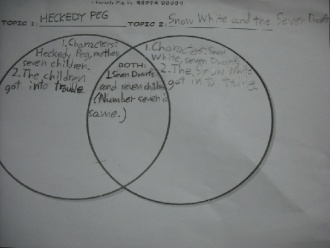 TOPIC 1: HECKEDY PEG
TOPIC 2: Snow White and the Seven Dwarfs
1. Characters:
Heckedy Peg, mother
seven children.
2. The children
got into trouble
BOTH:
1. Seven Dwarfs
and seven children
(Number seven is
same.)
1. Characters: Snow
White, seven Dwarfs
2. The Snow White
got into